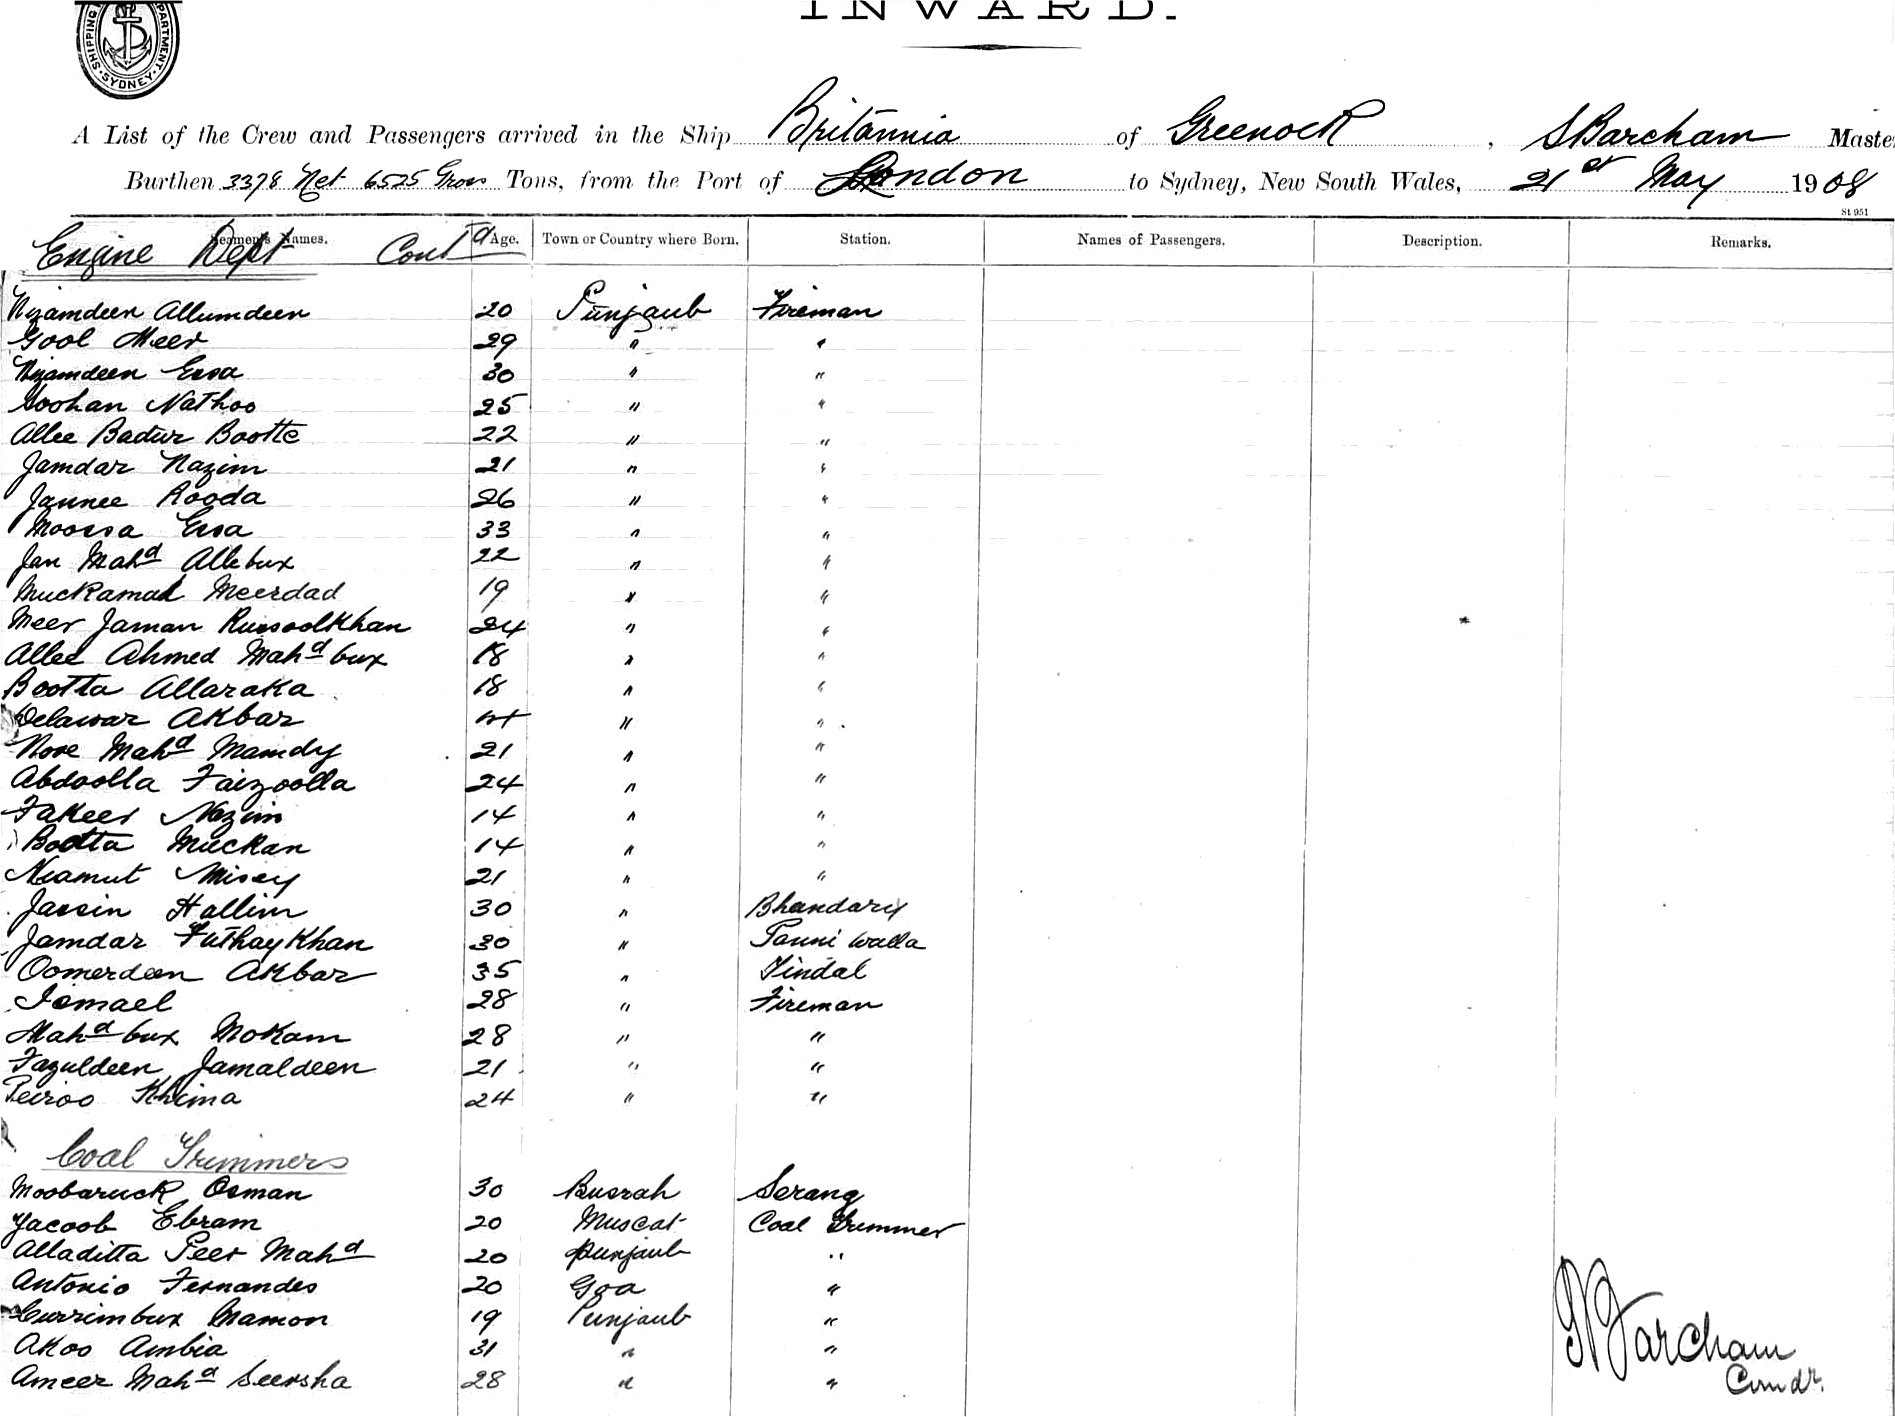 INWARD.
SHIPPING DEPARTMENT. SYDNEY.
A List of the Crew and Passengers arrived in the Ship Britannia of Greenock, S Barcham Maste
Burthen 3378 Net 6525 Gross Tons, from the Port of London to Sydney, New South Wales, 21st May 1908
St 951
Seamen's Names. Age. Town or Country where Born. Station. Names of Passengers. Description. Remarks.
Engine Dept Contd
Nizamdeen Allumdeen 20 Punjaub Fireman
Gool Meer 29 " "
Nizamdeen Essa 30 " "
Soohan Nathoo 25 " "
Allee Badur Bootte 22 " "
Jamdar Nazim 21 " "
Jaunee Rooda 26 " "
Moossa Essa 33 " "
Jan Mahd Allebux 22 " "
Muckamad Meerdad 19 " "
Meer Jaman Russoolkhan 24 " "
Allee Ahmed Mahd bux 18 " "
Bootta Allaraka 18 " "
Delawar Akbar " "
Nore Mahd Mamdy 21 " "
Abdoolla Faizoolla 24 " "
Fakeer Nazim 14 " "
Bootta Muckan 14 " "
Niamut Misey 21 " "
Jassin Hallim 30 " Bhandary
Jamdar Futhaykhan 30 " Pauni walla
Oomerdeen Akbar 35 " Tindal
Ismael 28 " Fireman
Mahd bux Mokam 28 " "
Fazuldeen Jamaldeen 21 " "
Peiroo Khima 24 " "
Coal Trimmers
Moobaruck Osman 30 Busrah Serang
Yacoob Ebram 20 Muscat Coal Trimmer
Alladitta Peer Mahd 20 Punjaub "
Antonio Fernandes 20 Goa "
Currimbux Mamon 19 Punjaub "
Akoo Ambia 31 " "
Ameer Mahd Seersha 28 " "
Barcham
Comdr.